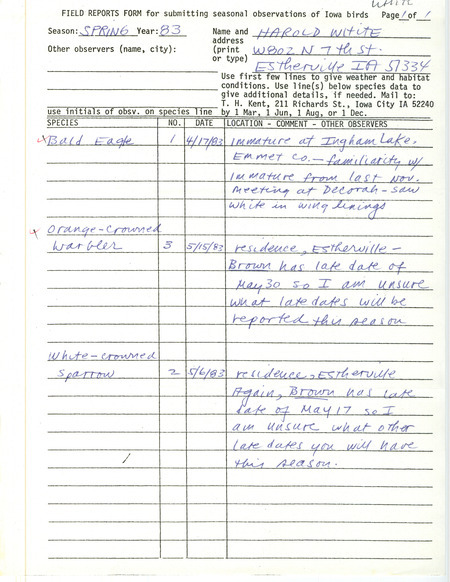 White
FIELD REPORTS FORM for submitting seasonal observations of Iowa birds Page 1 of 1
Season: SPRING Year: 83 Name and HAROLD WHITE
address
Other observers (name, city): (print W802 N 7th St.
or type) Estherville IA 51334
Use first few lines to give weather and habitat
conditions. Use line(s) below species data to
give additional details, if needed. Mail to:
T. H. Kent, 211 Richards St., Iowa City IA 52240
use initials of obsv. on species line by 1 Mar, 1 Jun, 1 Aug, or 1 Dec.
SPECIES NO. DATE LOCATION - COMMENT - OTHER OBSERVERS
x Bald Eagle 1 4/17/83 immature at Ingham Lake,
Emmet Co. — familiarity w/
immature from last Nov.
meeting at Decorah - saw
white in wing linings
x Orange-crowned
Warbler 3 5/15/83 residence, Estherville -
Brown has late date of
May 30 so I am unsure
what late dates will be
reported this season
White-crowned
Sparrow 2 5/6/83 residence, Estherville
Again, Brown has late
date of May 17 so I
am unsure what other
late dates you will have
this season.
/